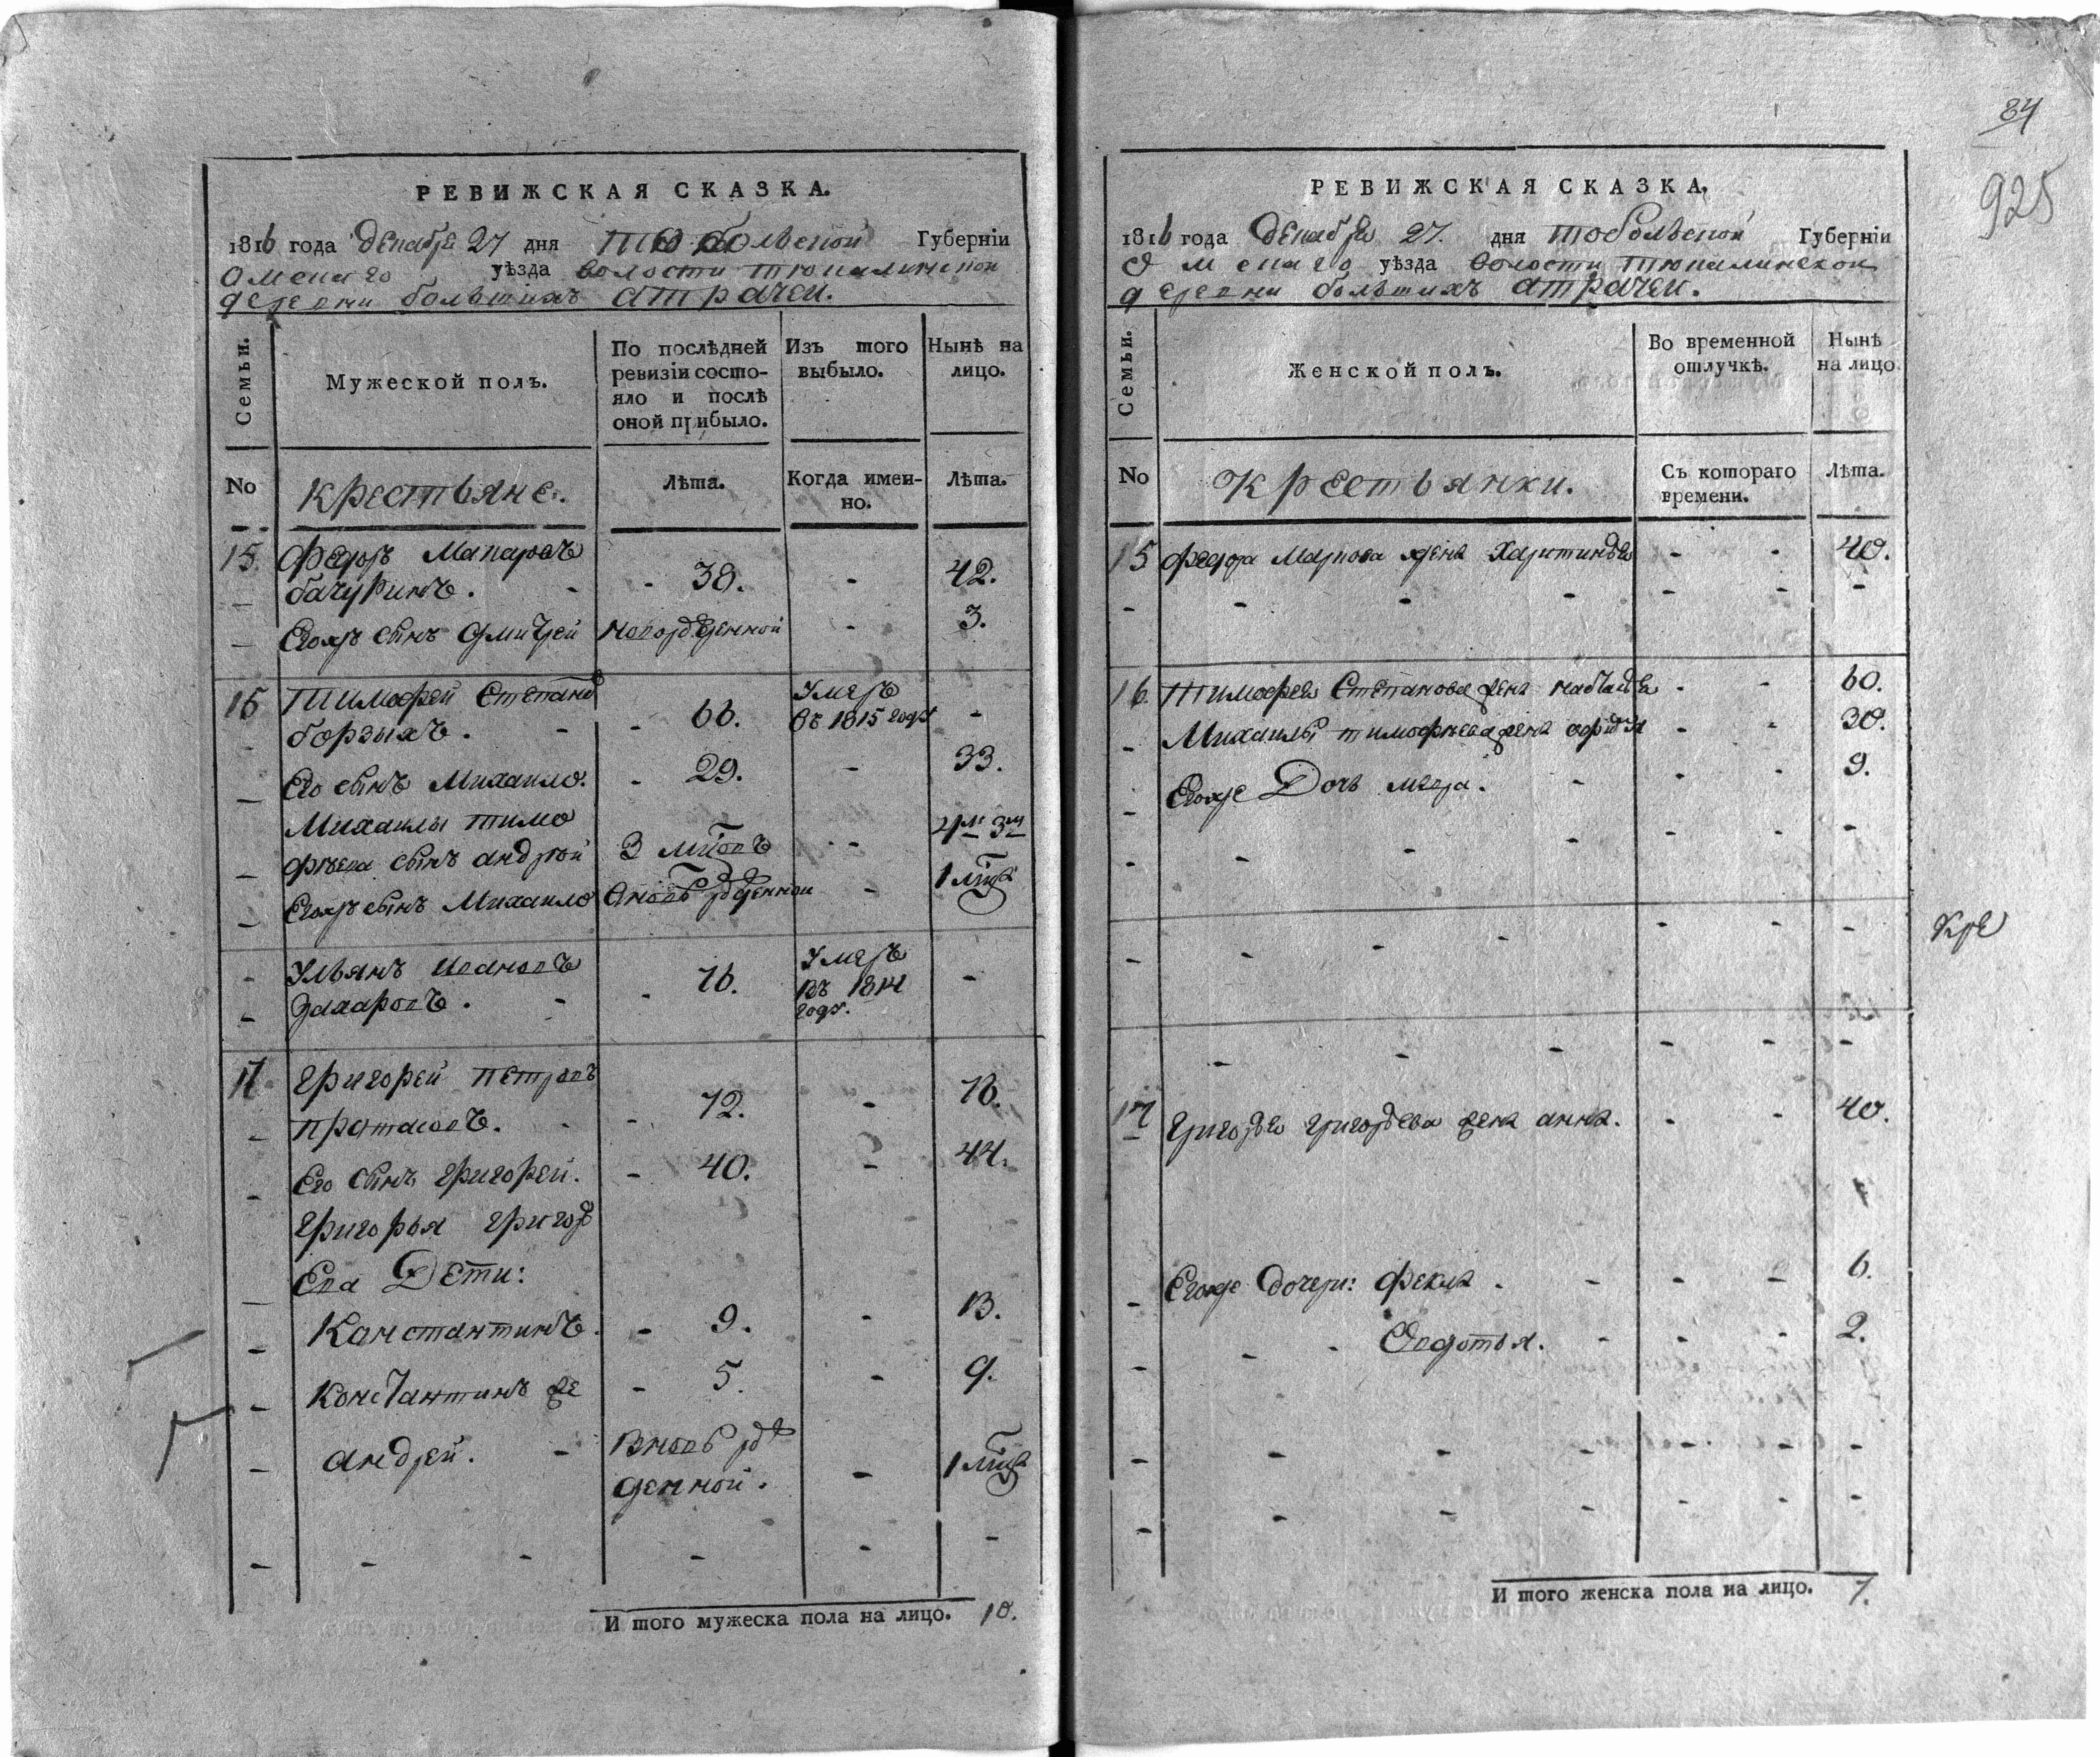 РЕВИЖСКАЯ СКАЗКА.
1816 года декабря 27 дня тобольской Губернiи
Омскаго уѣзда волости тюкалинской
деревни большихъ атрачей.
Семьи.
Мужеской полъ.
По послѣдней ревизiи состояло и послѣ оной прибыло.
Изъ того выбыло.
Нынѣ на лицо.
No
крестьяне.
Лѣта.
Когда именно.
Лѣта.
15. Федоръ Макаровъ
бачуринъ. - - 38. - 42.
Егожъ сынъ дмитрей новорожденной - 3.
16 Тимофей Степановъ Умеръ
борзыхъ. - - 66. въ 1815 году -
Его сынъ Михаило. - 29. - 33.
Михаилы тимо
фѣева сынъ андрей 3 мѣсцовъ - - 4 л 3 м
Егожъ сынъ Михаило вновь рожденной - 1 мѣсца
Ульянъ Ивановъ Умеръ
Захаровъ. - - 76. въ 1814 году. -
17 григорей петровъ
протасовъ. - - 72. - 76.
Его сынъ григорей. - 40. - 44.
григорья григорь
ева Дети:
Констянтинъ. - 9. - 13.
Констянтинъ же - 5. - 9.
андрей. - вновь рож
денной. - 1 мѣсца
И того мужеска пола на лицо. 10.
84
925
РЕВИЖСКАЯ СКАЗКА,
1816 года декабря 27. дня тобольской Губернiи
Омскаго уѣзда волости тюкалинской
деревни большихъ атрачей.
Семьи.
Женской полъ.
Во временной отлучкѣ.
Нынѣ на лицо.
No
Крестьянки.
Съ котораго времени.
Лѣта.
15 Федора Маркова жена Харитинья - - 40.
16 Тимофея Степанова жена - - 60.
Михаилы тимофѣева жена - - 30.
Егоже Дочь - - - 9.
Кре
17 григорья григорьева жена анна. - - 40.
Егоже дочери: фекла. - - - 6.
Овдотья. - - - 2.
И того женска пола на лицо. 7.